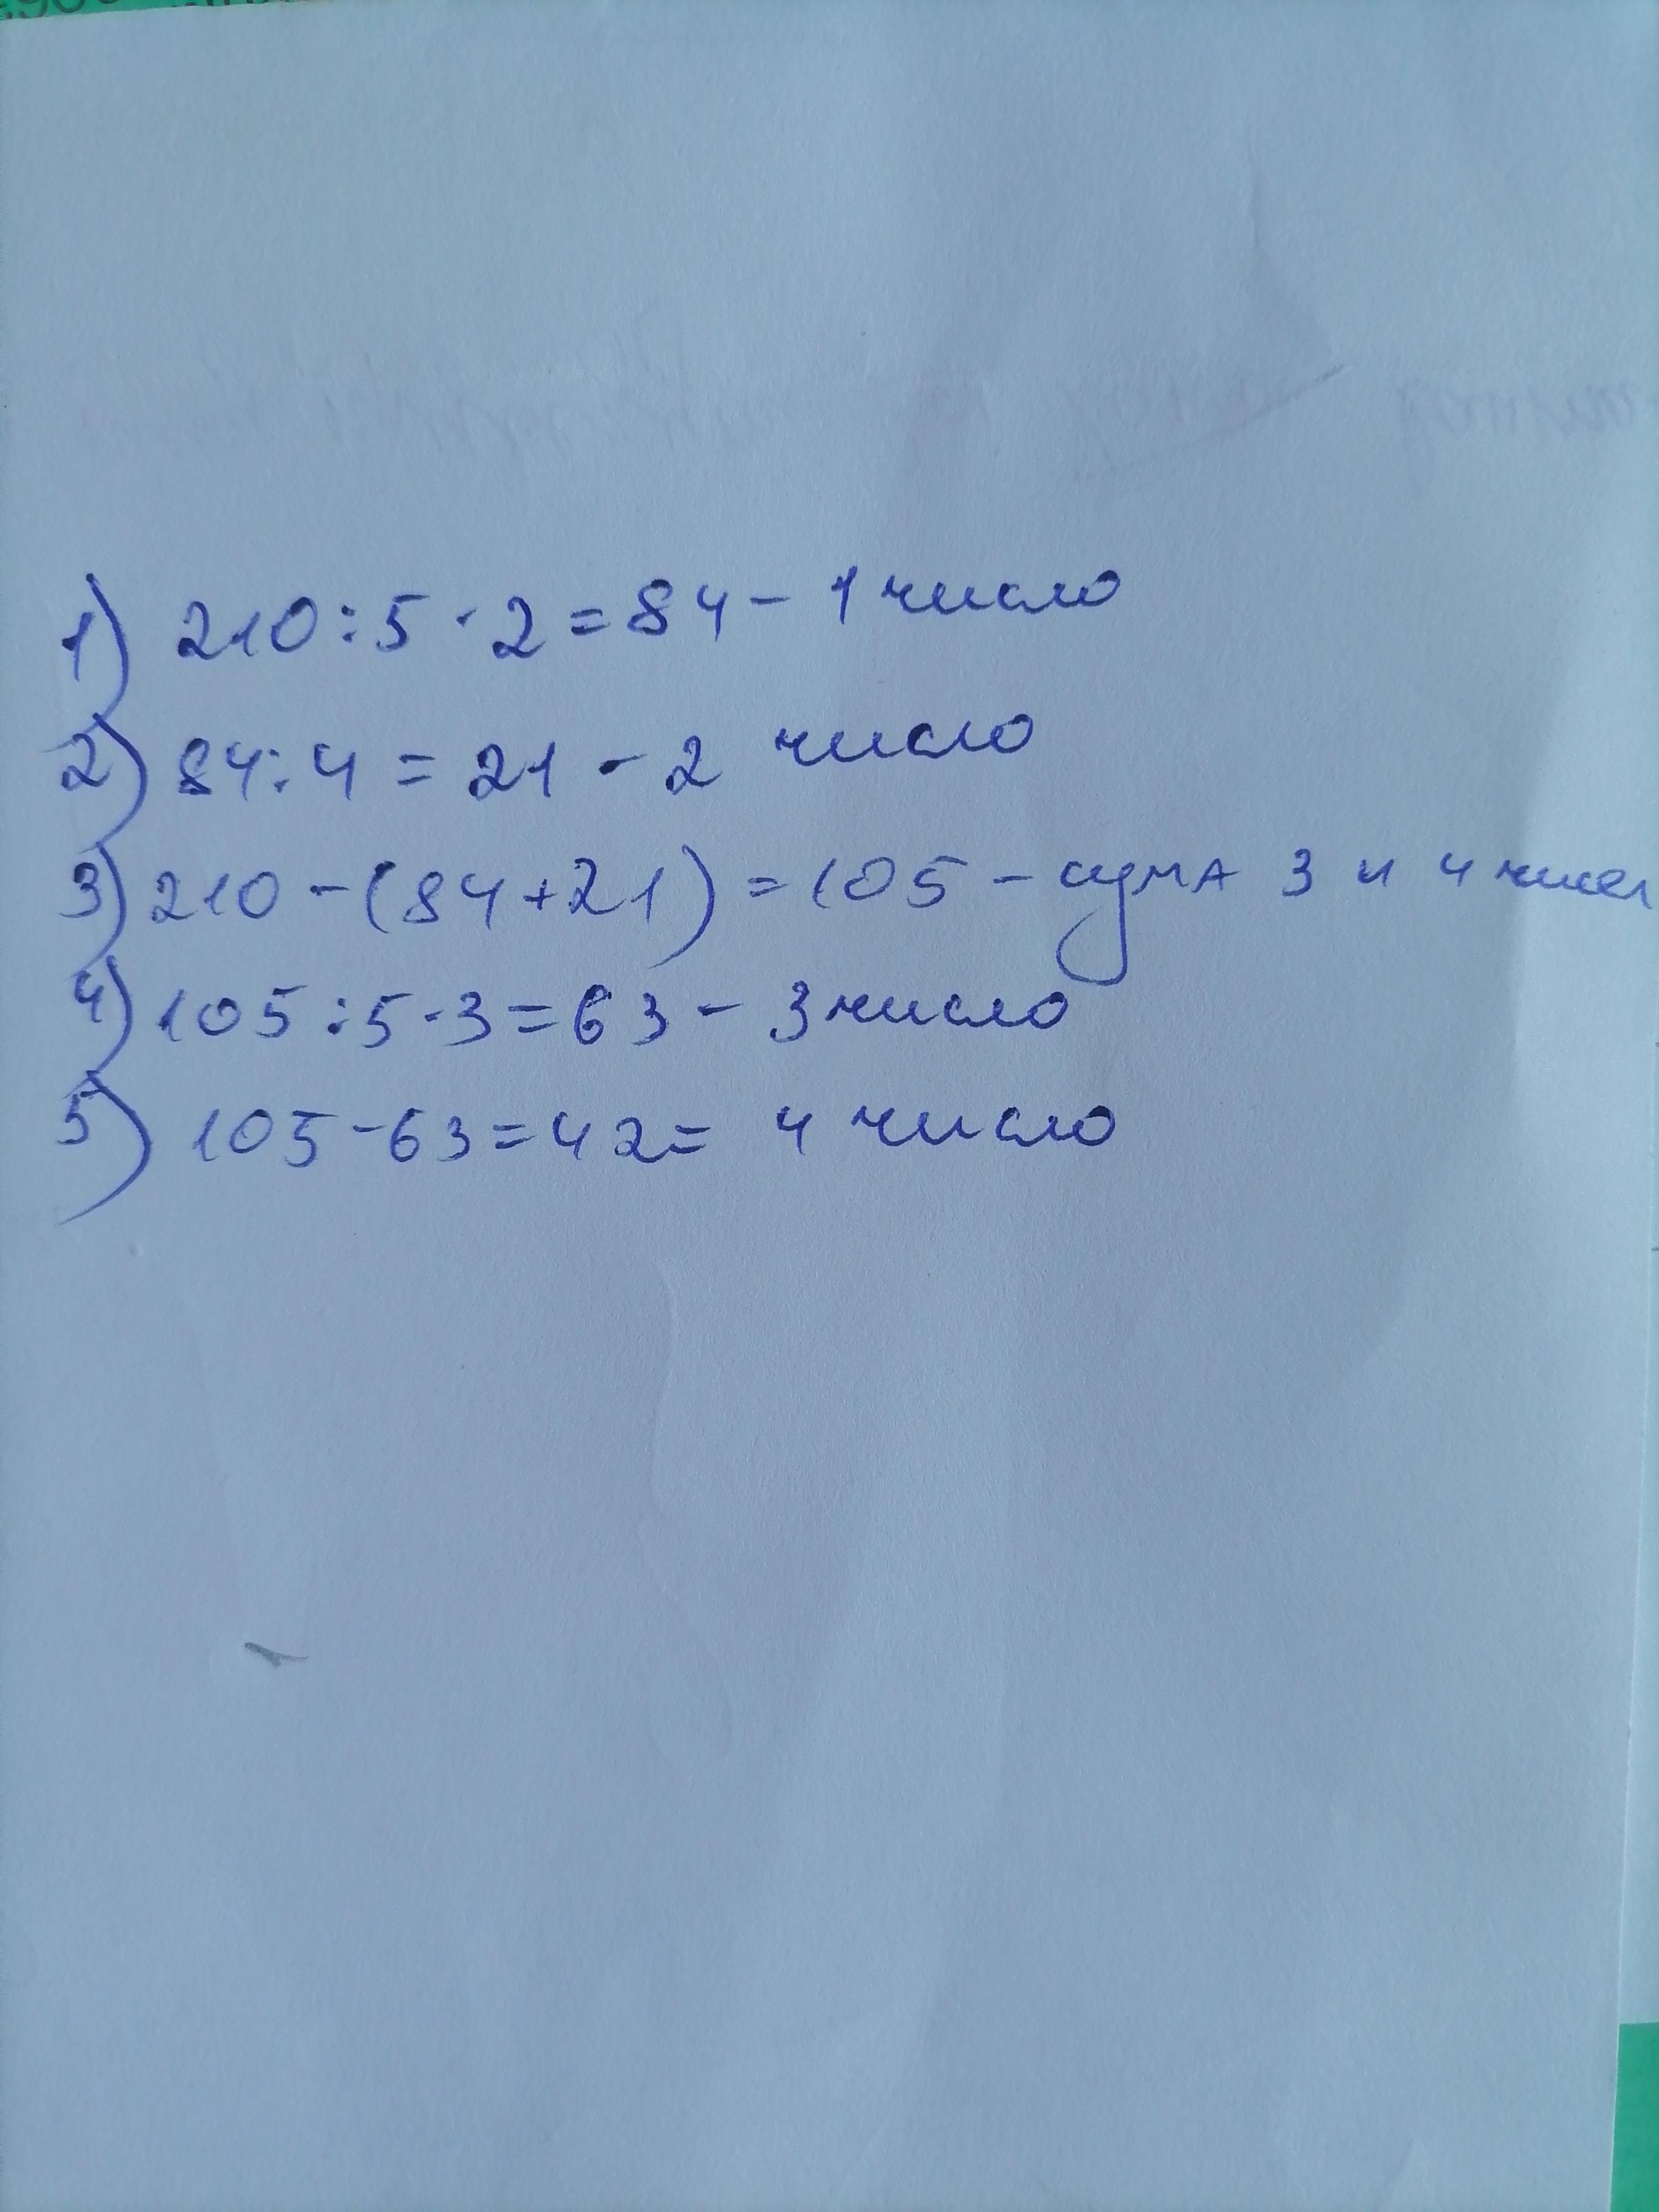 1) 210:5·2=84-1 число
2) 84:4=21-2 число
3) 210-(84+21)=105-сума 3 и 4 чисел
4) 105:5·3=63-3 число
5) 105-63=42= 4 число